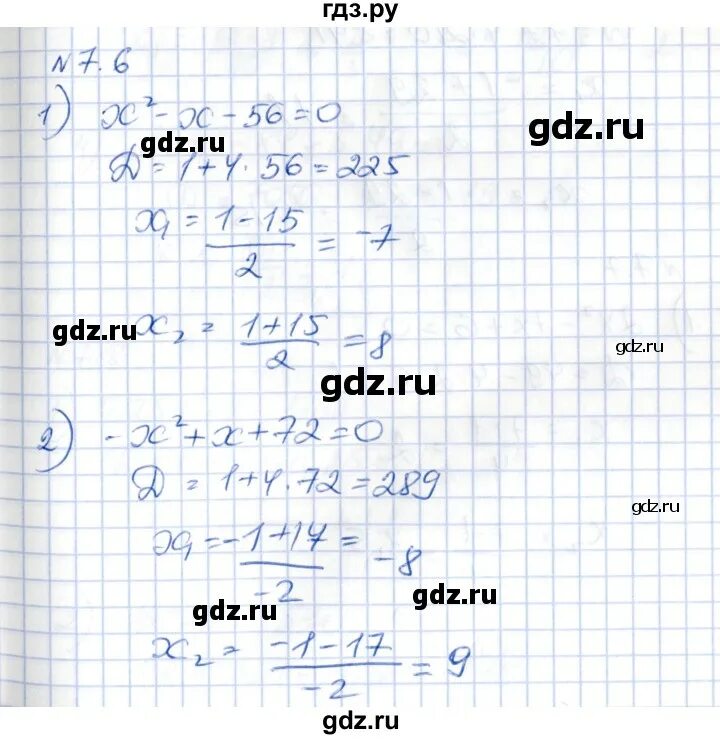 гдз.ру
N 7.6
1) x² - x - 56 = 0
gdz.ru gdz.ru
D = 1 + 4 · 56 = 225
x₁ = (1 - 15)/2 = -7
gdz.ru x₂ = (1 + 15)/2 = 8 gdz.ru
gdz.ru
2) -x² + x + 72 = 0
D = 1 + 4 · 72 = 289
gdz.ru
x₁ = (-1 + 17)/-2 = -8
gdz.ru gdz.ru
x₂ = (-1 - 17)/-2 = 9
gdz.ru